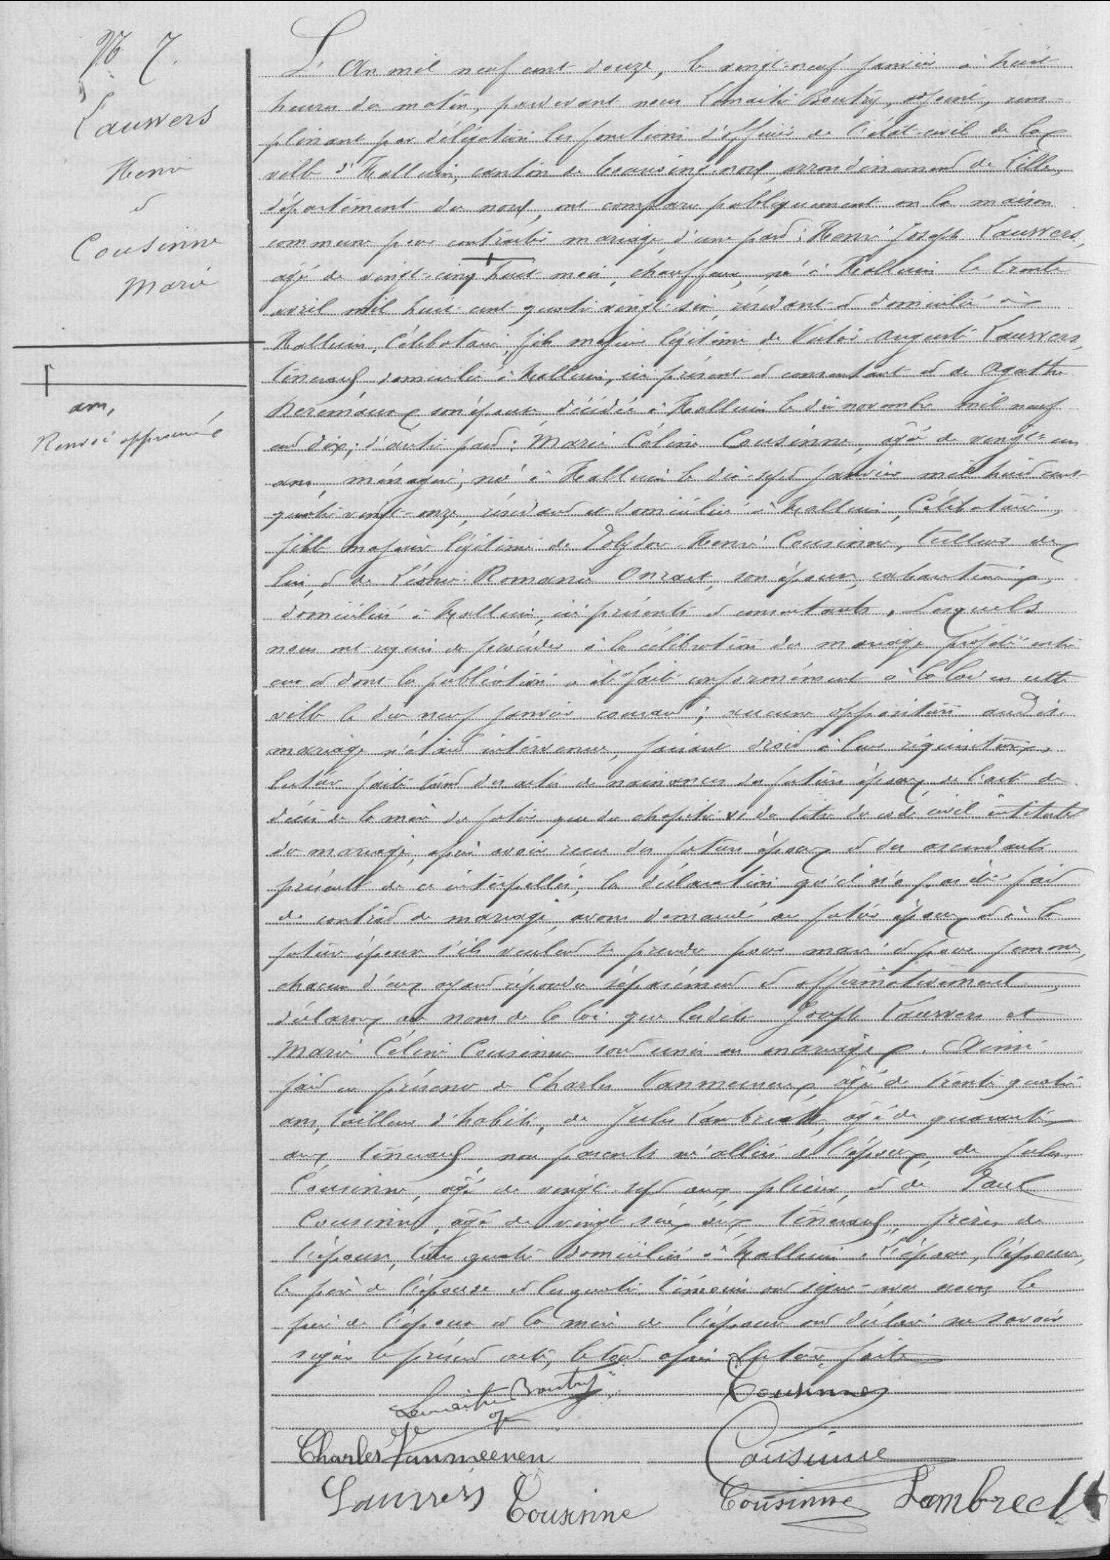 N° 7.
Lauwers
Henri
et
Cousinne
Marie
ans,
Renvoi approuvé
L'An mil neuf cent douze, le vingt-neuf Janvier à huit
heures du matin, pardevant nous Lemaitre Boutry, adjoint, rem-
plissant par délégation les fonctions d'officier de l'état-civil de la
ville d'Halluin, canton de Tourcoing-nord, arrondissement de Lille,
département du nord, ont comparu publiquement en la maison
commune pour contracter mariage, d'une part: Henri Joseph Lauwers,
agé de vingt-cinq huit mois, chauffeur, né à Halluin le trente
avril mil huit cent quatre vingt-six, résidant et domicilié à
Halluin, Célibataire, fils majeur légitime de Victor Auguste Lauwers,
tisserand, domicilié à Halluin, ici présent et consentant et de Agathe
son épouse, décédée à Halluin le dix novembre mil neuf
cent dix; d'autre part: Marie Céline Cousinne, agée de vingt-un
ans, ménagère, née à Halluin le dix-sept Janvier mil huit cent
quatre vingt-onze, résidant et domiciliée à Halluin, Célibataire,
fille majeure légitime de Polydor Henri Cousinne, tulleur de
lin, et de Léonie Romanie Onraet, son épouse, cabaretière,
domiciliés à Halluin, ici présents et consentants. Lesquels
nous ont requis de procéder à la célébration du mariage projeté entre
eux et dont la publication a été faite conformément à la loi en cette
ville le dix neuf Janvier courant; aucune opposition au dit
mariage n'étant intervenue, faisant droit à leur réquisition,
lecture faite tant des actes de naissances des futurs époux, de l'acte de
décès de la mère du futur que du chapitre VI du titre du code civil intitulé
du mariage, après avoir reçu des futurs époux et des ascendants
présents de ce interpellés, la déclaration qu'il n'a pas été fait
de contrat de mariage, avons demandé au futur époux et à la
future épouse s'ils veulent se prendre pour mari et pour femme,
chacun d'eux ayant répondu séparément et affirmativement,
déclarons au nom de la loi que lesdits Joseph Lauwers et
Marie Céline Cousinne sont unis en mariage. Ainsi
fait en présence de Charles Vanmeenen, agé de trente quatre
ans, tailleur d'habits, de Jules Lambrecht, agé de quarante
ans, tisserand, non parents ni alliés de l'époux, de Jules
Cousinne, agé de vingt-sept ans, plieur, et de Paul
Cousinne, agé de vingt six ans, tisserand, frères de
l'épouse, tous quatre domiciliés à Halluin. L'époux, l'épouse,
le père de l'épouse et les quatre témoins ont signé avec nous, le
père de l'époux et la mère de l'épouse ont déclaré ne savoir
signer le présent acte, le tout après lecture faite
Lemaitre Boutry
Cousinne
Charles Vanmeenen
Cousinne
Lauwers
Cousinne
Cousinne
Lambrecht